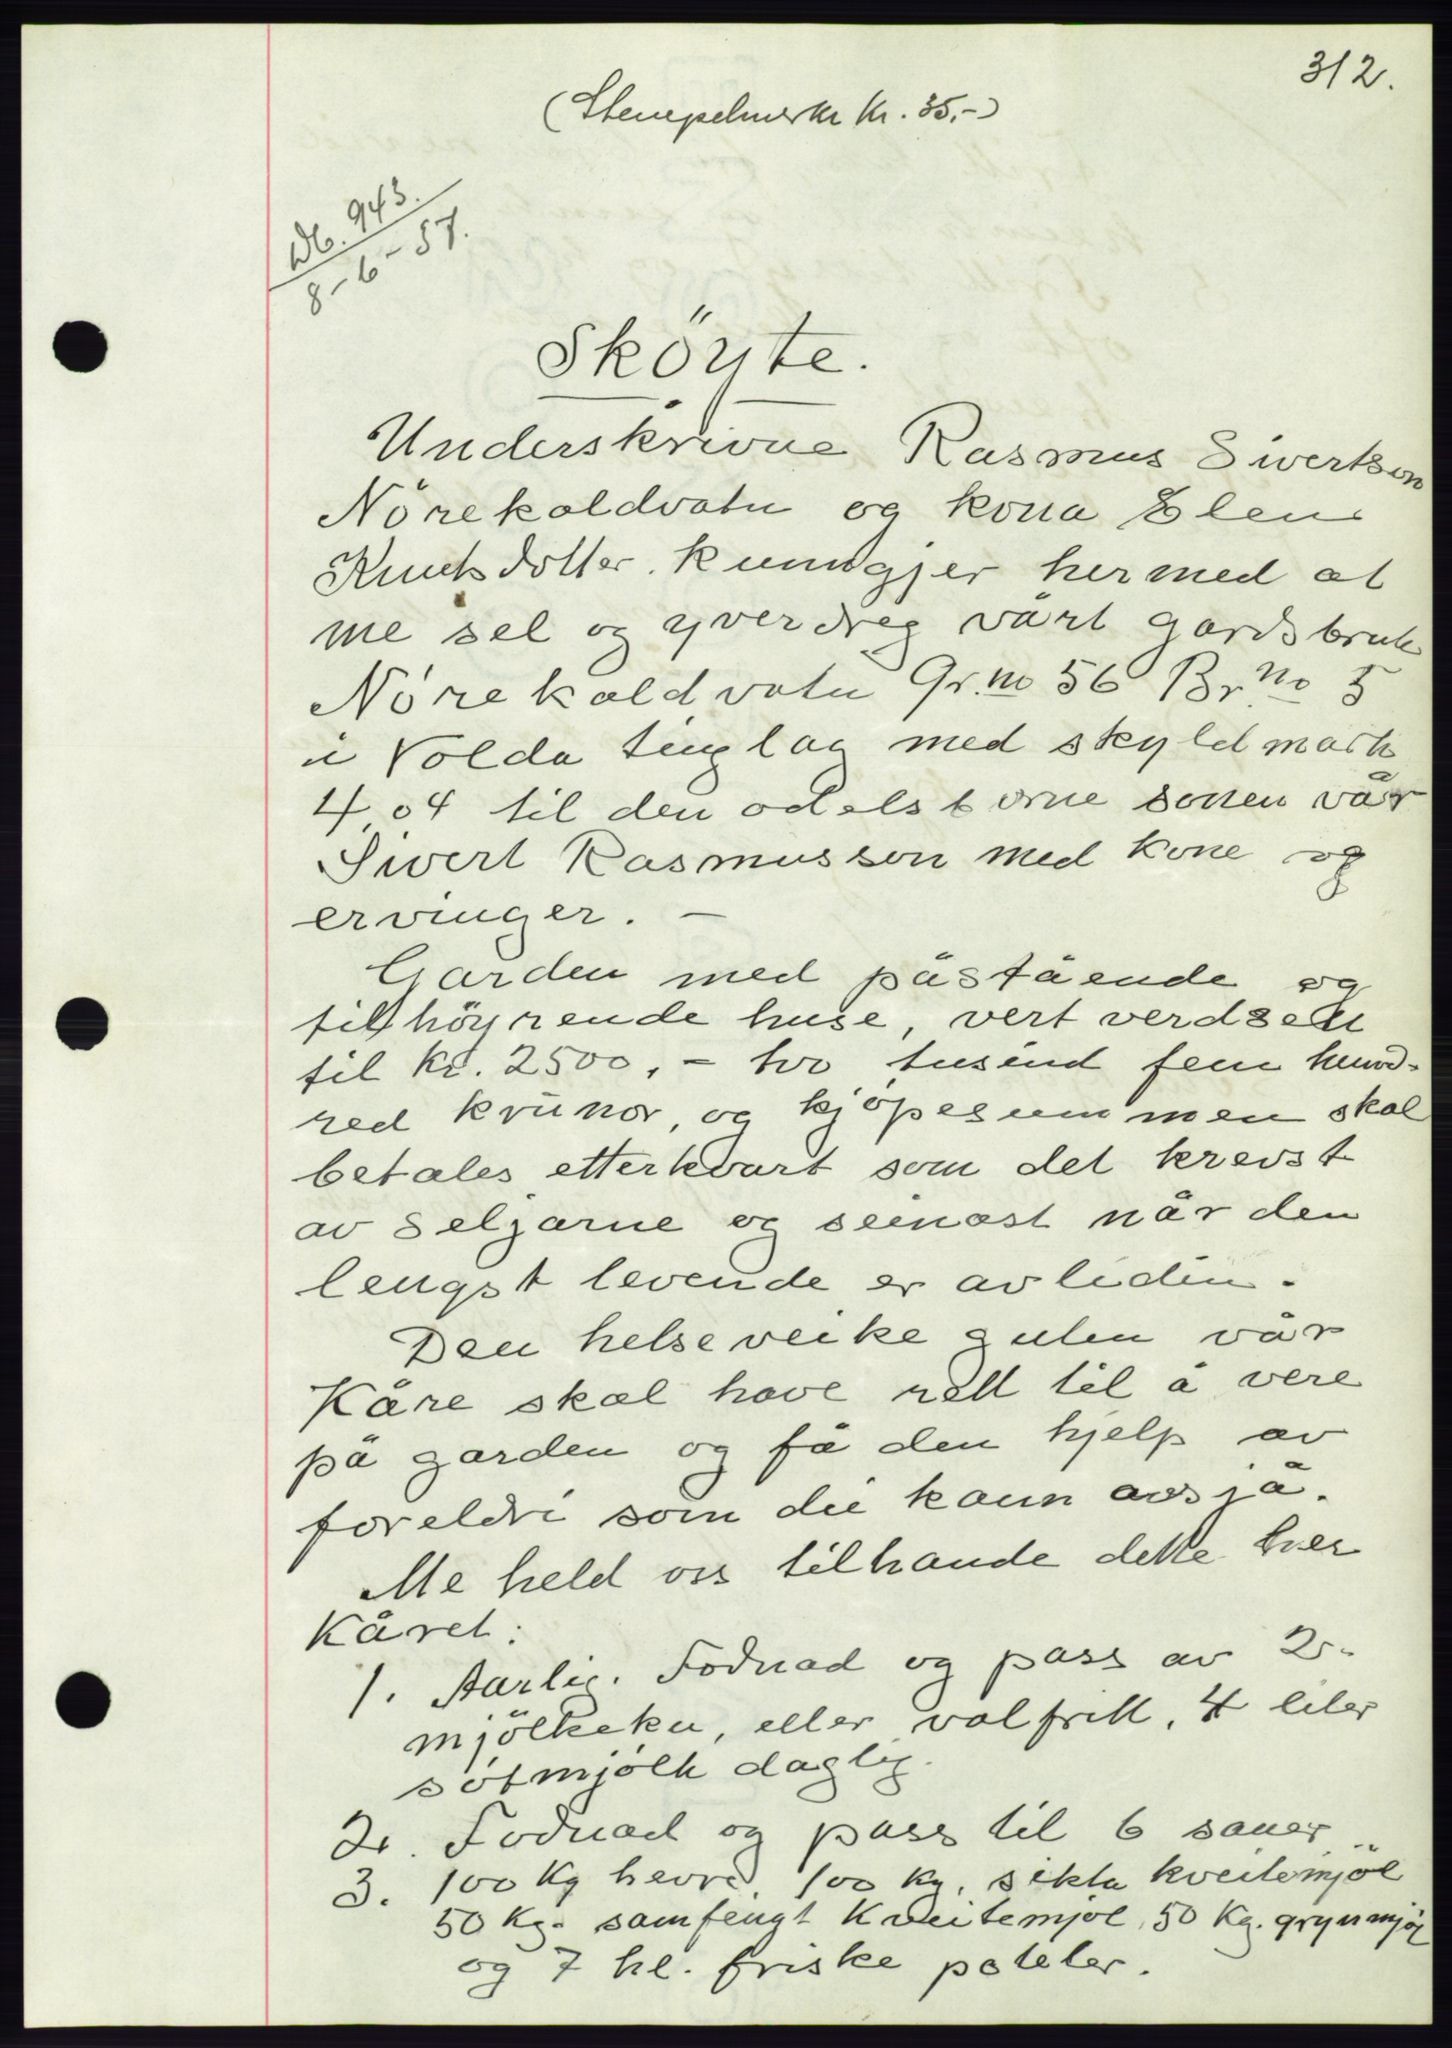 312.
(Stempelmerke Kr. 35,-)
Db. 943.
8-6-57.
Sköyte.
Underskrivne Rasmus Sivertson
Nörekaldvatn og kona Elen
Knutsdotter. kunngjer hermed at
me sel og yverdreg vårt gardsbruk
Nörekaldvatn Gr.no 56 Br.no 5
i Volda tinglag med skyldmark
4,04 til den odelsborne sonen vår
Sivert Rasmusson med kone og
ervinger. —
Garden med påstående og
tilhöyrende huse, vert verdsett
til kr. 2500,- two tusind fem hund-
red krunor, og kjöpesummen skal
betales etterkvart som det krevst
av seljarne og seinast når den
lengst levende er avliden.
Den helseveike guten vår
Kåre skal have rett til å vere
på garden og få den hjelp av
foreldri som dei kann avsjå.
Me held oss tilhande dette her
Kåret:
1. Aarlig. Fodnad og pass av 2-
mjölkeku, eller valfritt, 4 liter
sötmjölk daglig.
2. Fodnad og pass til 6 sauer
3. 100 Kg havre, 100 kg. sikta kveitemjöl
50 Kg. samfengt Kveitemjöl, 50 Kg. grynmjöl
og 7 hl. friske poteter.